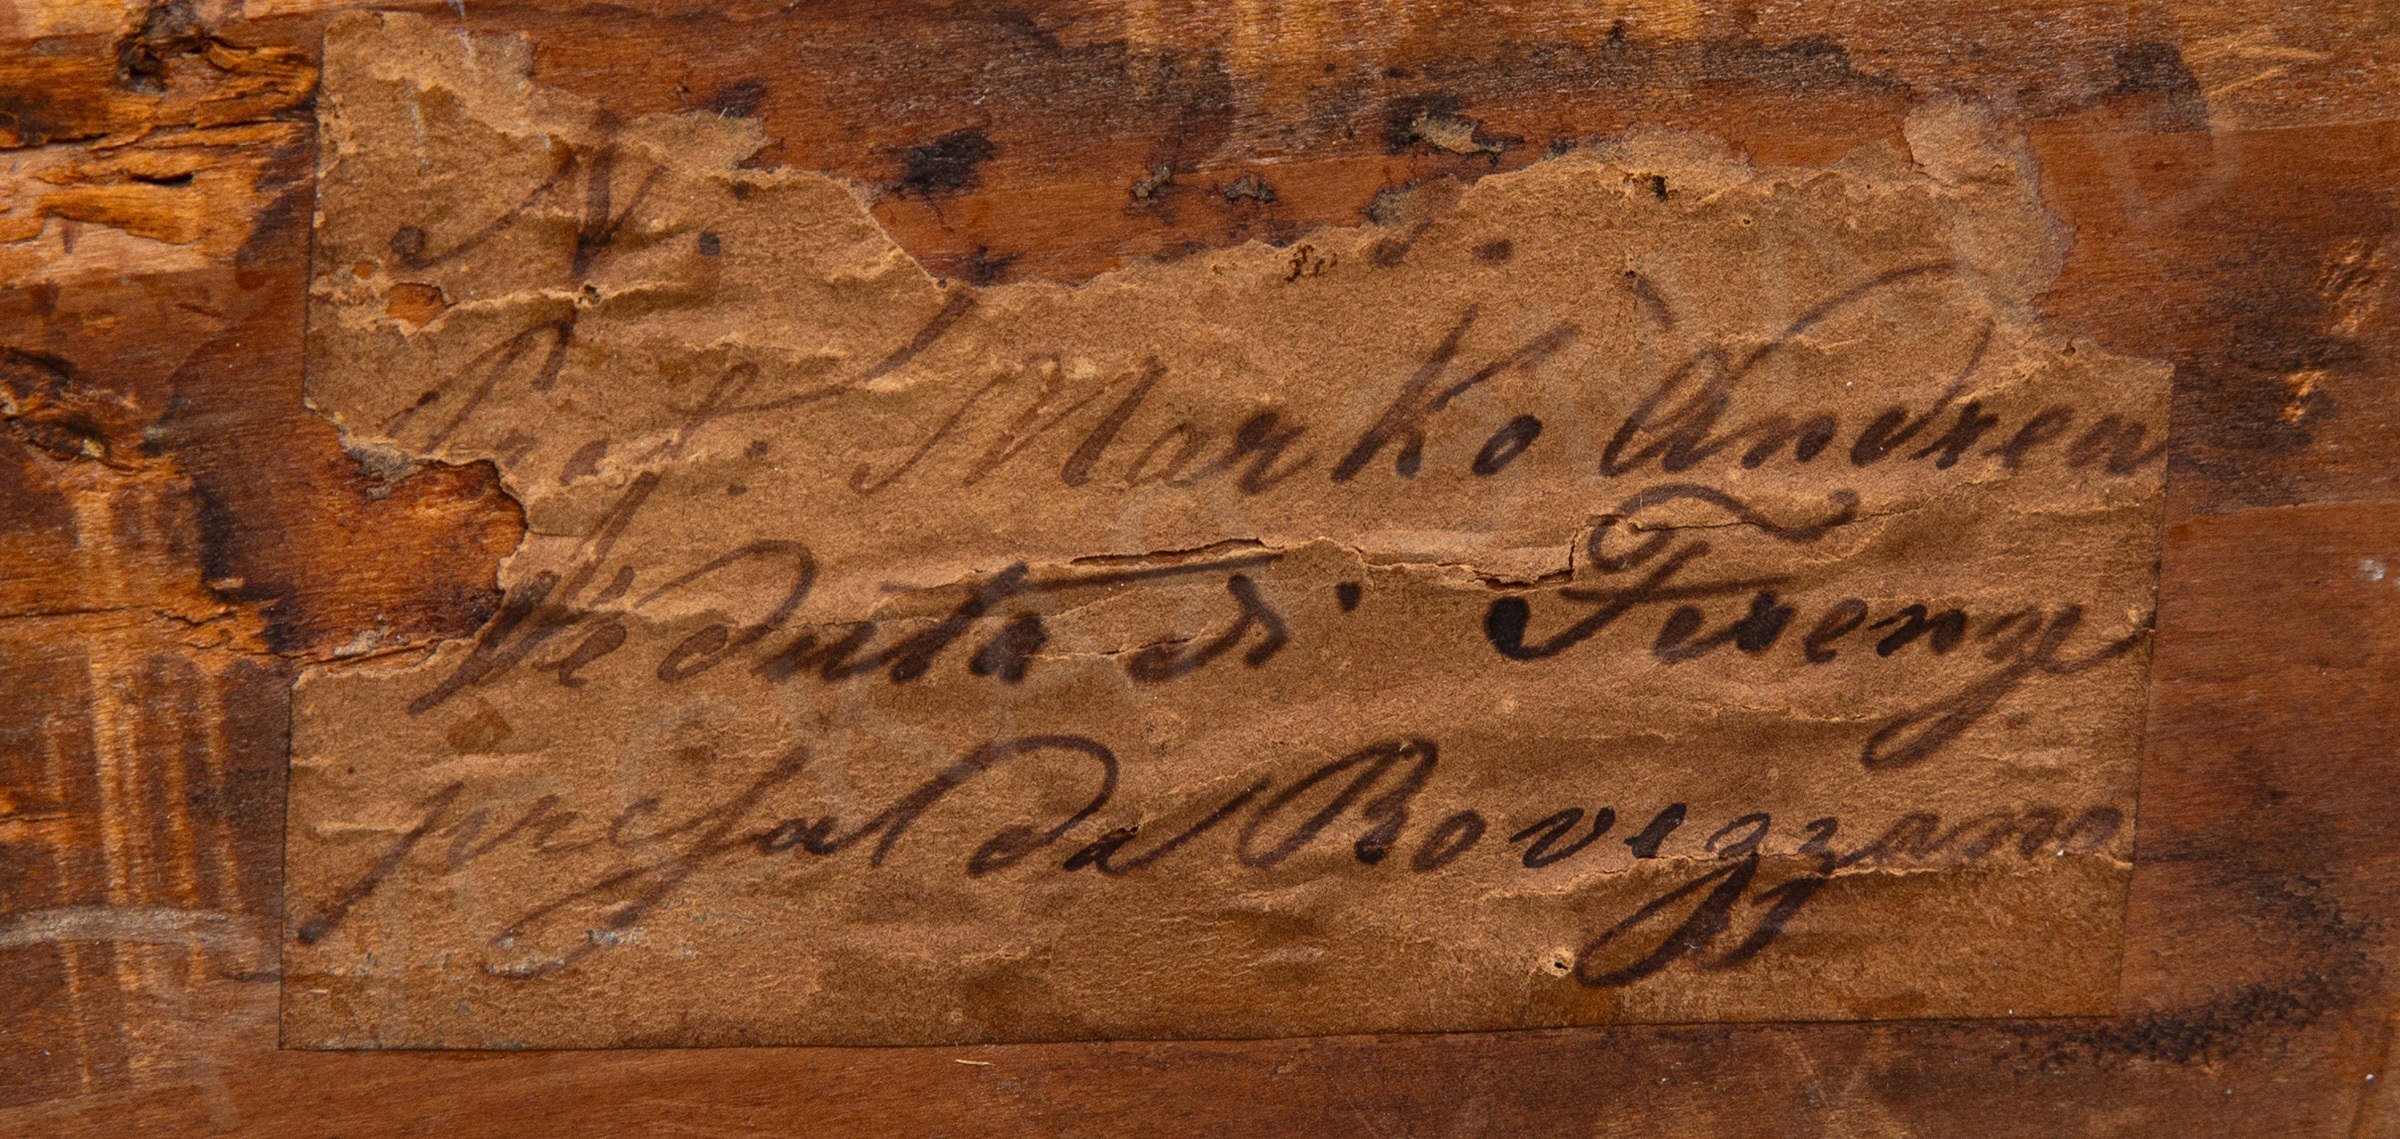 N.
Prof. Marko Andrea
Veduta di Firenze
presa da Bovezzano